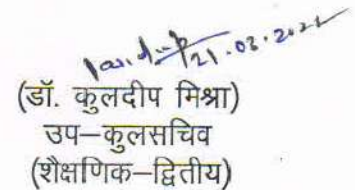 21.03.2022
(डॉ. कुलदीप मिश्रा)
उप–कुलसचिव
(शैक्षणिक–द्वितीय)